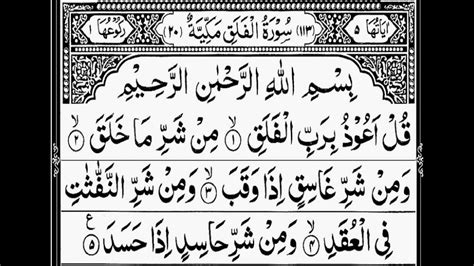 اٰيَاتُهَا ٥ (١١٣) سُوْرَةُ الْفَلَقِ مَكِّيَّةٌ (٢٠) رُكُوْعُهَا ١
بِسْمِ اللهِ الرَّحْمٰنِ الرَّحِيْمِ
قُلْ اَعُوْذُ بِرَبِّ الْفَلَقِ ۙ﴿١﴾ مِنْ شَرِّ مَا خَلَقَ ۙ﴿٢﴾
وَمِنْ شَرِّ غَاسِقٍ اِذَا وَقَبَ ۙ﴿٣﴾ وَمِنْ شَرِّ النَّفّٰثٰتِ
فِي الْعُقَدِ ۙ﴿٤﴾ وَمِنْ شَرِّ حَاسِدٍ اِذَا حَسَدَ ﴿٥﴾ ع